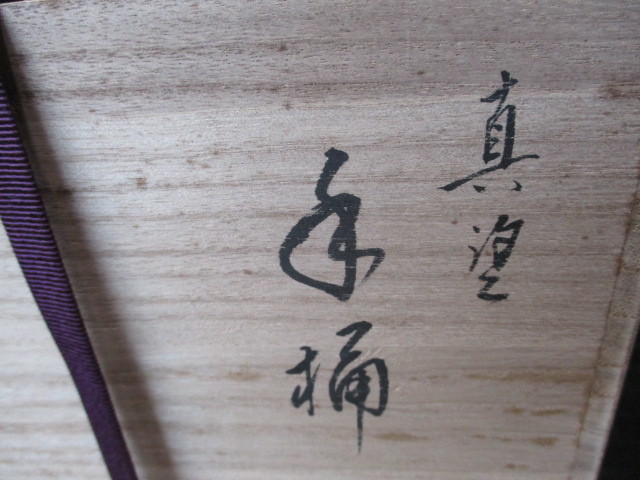 真塗
手桶